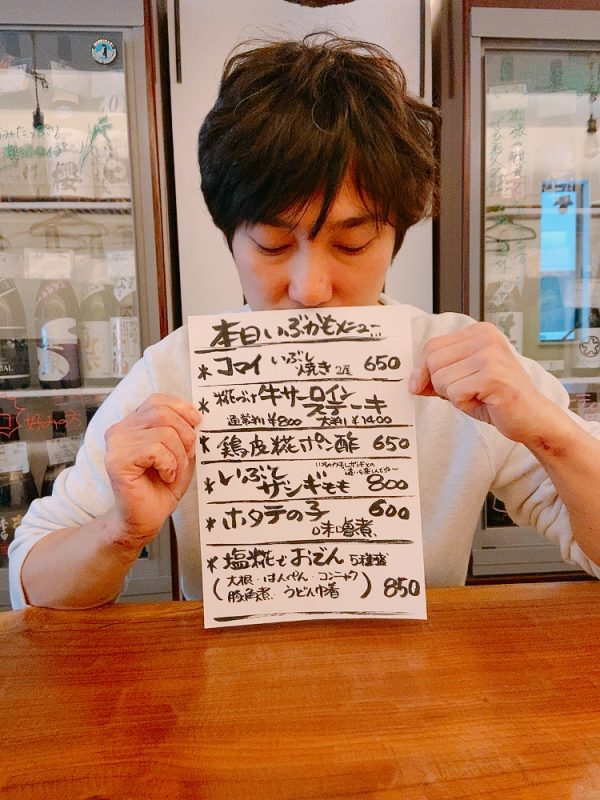 本日いぶかもメニュー
* コマイ いぶし焼き 2尾 650
* 糀づけ 牛サーロインステーキ
通常判¥800 大判¥1400
* 鶏皮糀ポン酢 650
* いぶしザンギもも 800
* ホタテの子 600
味噌煮
* 塩糀でおでん 5種盛
(大根・はんぺん・コンニャク
豚角煮・うどん巾着) 850
桜